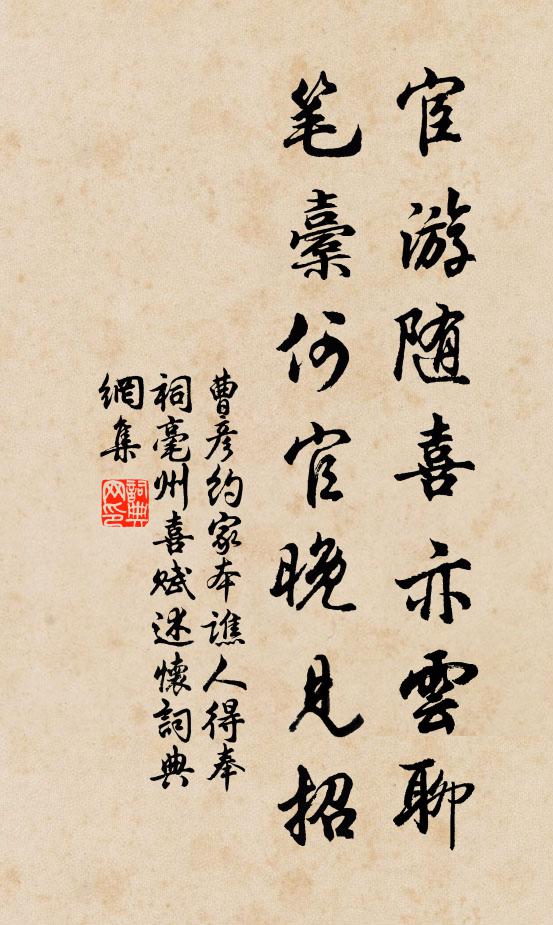 宦游随喜亦雲聊
笔橐何官晚见招
曹彦约家本譙人得奉
祠亳州喜赋述懷詞典
網集
詞典网印